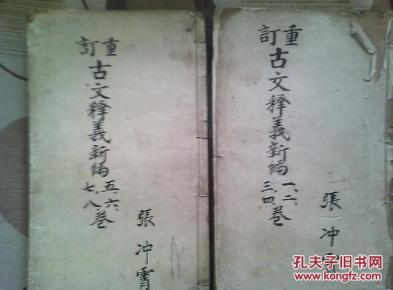 重訂
古文释義新編
一、二、
三、四、卷
張冲霄
重訂
古文释義新編
五、六、
七、八卷
張冲霄
孔夫子旧书网